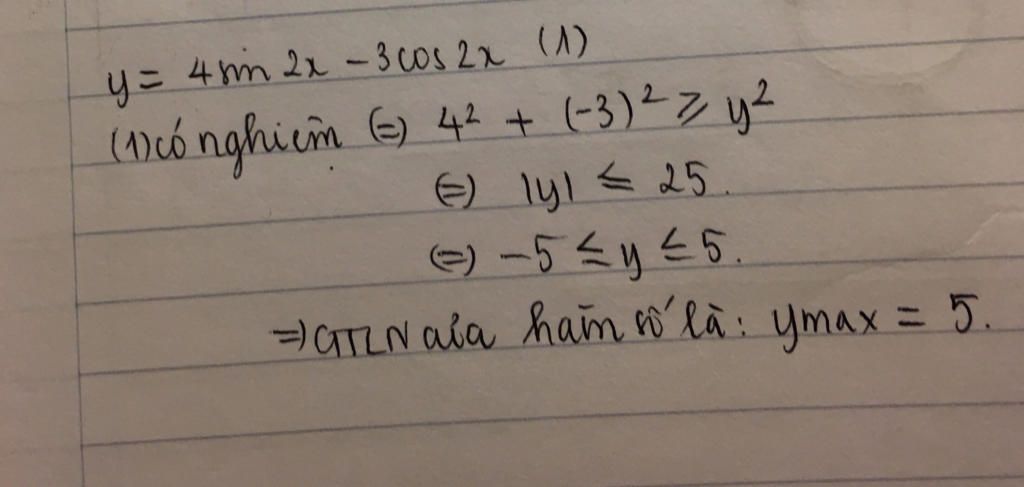 y = 4 sin 2x - 3 cos 2x (1)
(1) có nghiệm (=) 4² + (-3)² ⩾ y²
(=) |y| ≤ 25.
(=) -5 ≤ y ≤ 5.
=) GTLN của hàm số là: ymax = 5.